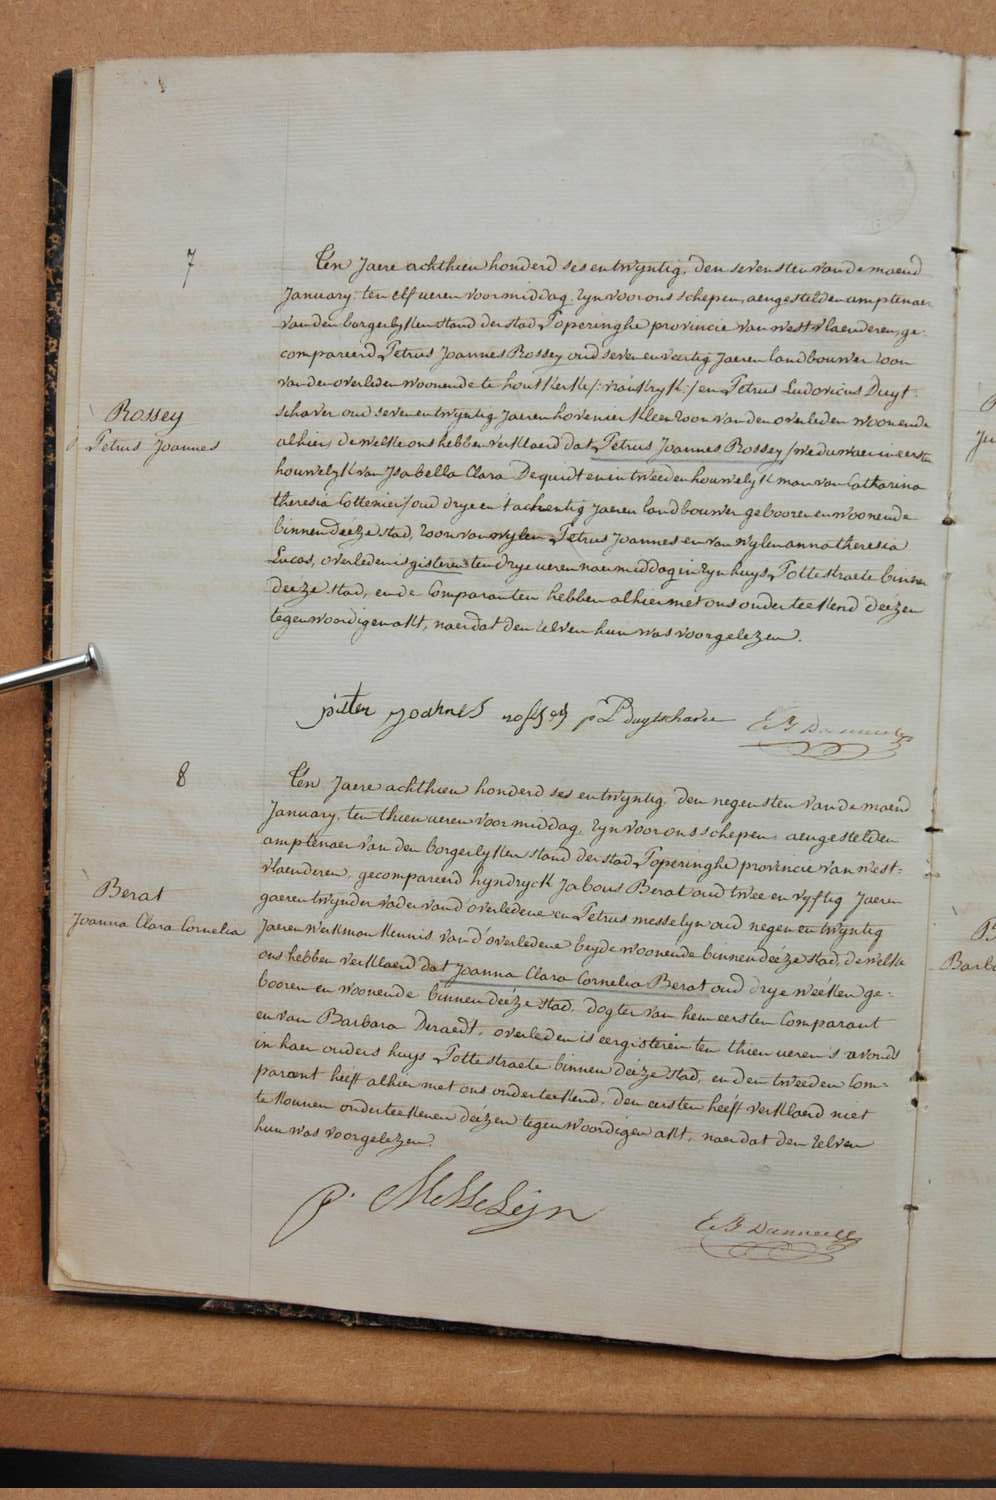 7
Ten Jaere achthien honderd ses en twyntig, den sevensten van de maend
January, ten elf ueren voormiddag, zyn voor ons schepen, aengestelden amptenaer
van den borgerlyken stand der stad Poperinghe provincie van westvlaenderen, ge-
compareerd Petrus Joannes Rossey oud seven en veertig Jaeren landbouwer zoon
van den overleden woonende te houtkerke /: vrankryk :/ en Petrus Ludovicus Duyt-
schaver oud seven en twyntig Jaeren hovenier kleenzoon van den overleden woonende
Rossey
Petrus Joannes
alhier, de welke ons hebben verklaerd dat Petrus Joannes Rossey /weduwaer in eersten
houwelyk van Isabella Clara Dequidt en in tweeden houwelyk man van Catharina
theresia Cottenier/ oud drye en tachentig jaeren landbouwer gebooren en woonende
binnen deéze stad, zoon van wylen Petrus Joannes en van wylen anna theresia
Lucas, overleden is gisteren ten drye ueren naermiddag in zyn huys Pottestraete binnen
deéze stad, en de Comparanten hebben alhier met ons onderteekend deézen
tegenwoordigen akt, naer dat den zelven hun was voorgelezen.
pitter joannes rossey p L Duytschaver
8
Ten Jaere achthien honderd ses en twyntig, den negensten van de maend
January, ten thien ueren voormiddag, zyn voor ons schepen, aengestelden
amptenaer van den borgerlyken stand der stad Poperinghe provincie van west=
vlaenderen, gecompareerd hyndryck Jabous Berat oud twee en vyftig Jaeren
Berat
Joanna Clara Cornelia
gaerentwynder vader van d'overledene en Petrus messelyn oud negen en twyntig
Jaeren werkman kennis van d'overledene beyde woonende binnen deéze stad, de welke
ons hebben verklaerd dat Joanna Clara Cornelia Berat oud drye weéken ge=
booren en woonende binnen deéze stad, dogter van hem eersten Comparant
en van Barbara Deraedt, overleden is eergisteren ten thien ueren s'avonds
in haer ouders huys Pottestraete binnen deéze stad, en den tweeden Com-
parant heéft alhier met ons onderteekend, den eersten heéft verklaerd niet
te konnen onderteekenen deézen tegenwoordigen akt, naer dat den zelven
hun was voorgelezen.
p. Messelijn